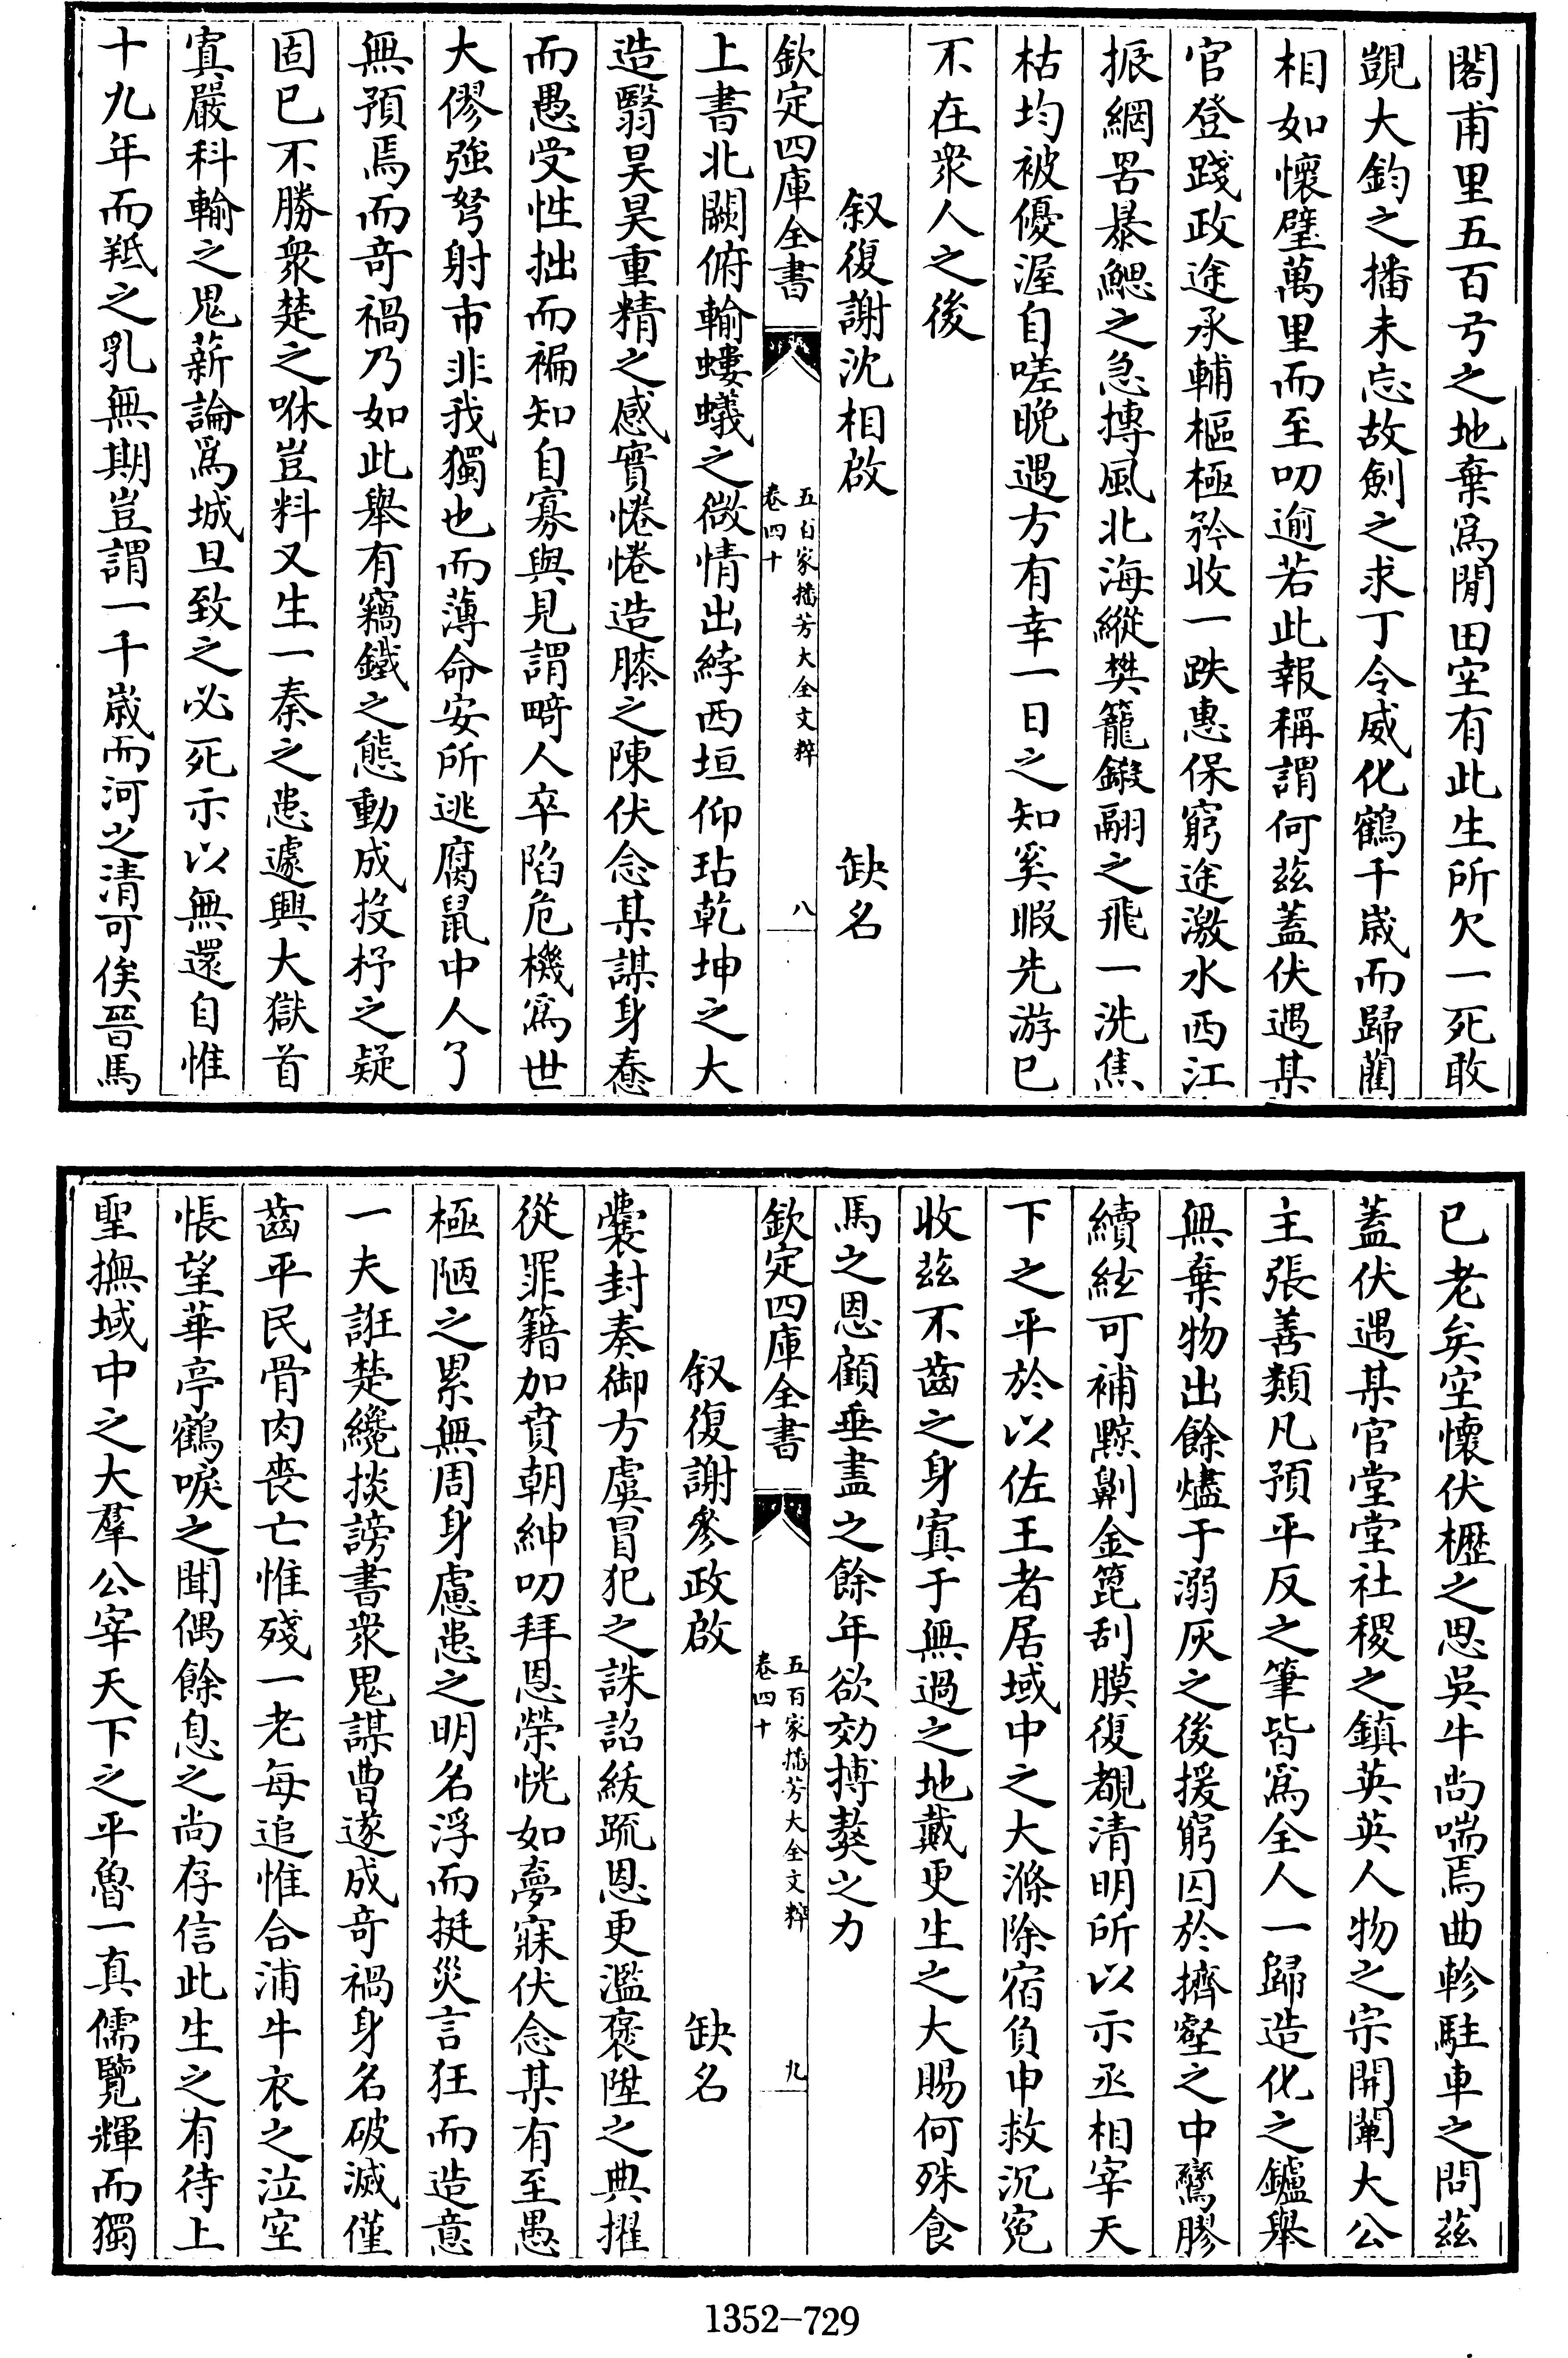 閣甫里五百弓之地棄爲閒田空有此生所欠一死敢
覬大鈞之播未忘故劍之求丁令威化鶴千歲而歸藺
相如懷璧萬里而至叨逾若此報稱謂何兹蓋伏遇某
官登踐政途承輔樞極矜收一跌惠保窮途激水西江
振網罟暴鰓之急摶風北海縱樊籠鎩翮之飛一洗焦
枯均被優渥自嗟晚遇方有幸一日之知奚暇先游已
不在衆人之後
叙復謝沈相啟　缺名
欽定四庫全書　五百家播芳大全文粹　卷四十　八
上書北闕俯輸螻蟻之微情出綍西垣仰玷乾坤之大
造翳昊昊重精之感實惓惓造膝之陳伏念某謀身惷
而愚受性拙而褊知自寡與見謂畸人卒陷危機爲世
大僇強弩射市非我獨也而薄命安所逃腐鼠中人了
無預焉而竒禍乃如此舉有竊鐵之態動成投杼之疑
固已不勝衆楚之咻豈料又生一秦之患遽興大獄首
寘嚴科輸之鬼薪論爲城旦致之必死示以無還自惟
十九年而羝之乳無期豈謂一千歲而河之清可俟晉馬
已老矣空懷伏櫪之思吳牛尚喘焉曲軫駐車之問兹
蓋伏遇某官堂堂社稷之鎮英英人物之宗開闡大公
主張善類凡預平反之筆皆爲全人一歸造化之鑪舉
無棄物出餘燼于溺灰之後援窮囚於擠壑之中鸞膠
續絃可補黥劓金箆刮膜復覩清明所以示丞相宰天
下之平於以佐王者居域中之大滌除宿負申救沉寃
收兹不齒之身寘于無過之地戴更生之大賜何殊食
馬之恩顧垂盡之餘年欲効搏獒之力
欽定四庫全書　五百家播芳大全文粹　卷四十　九
叙復謝參政啟　缺名
囊封奏御方虞冒犯之誅詔綍疏恩更濫褒陞之典擢
從罪籍加賁朝紳叨拜恩榮恍如夢寐伏念某有至愚
極陋之累無周身慮患之明名浮而挺災言狂而造意
一夫誑楚纔掞謗書衆鬼謀曹遂成竒禍身名破滅僅
齒平民骨肉喪亡惟殘一老每追惟合浦牛衣之泣空
悵望華亭鶴唳之聞偶餘息之尚存信此生之有待上
聖撫域中之大羣公宰天下之平魯一真儒覽輝而獨
1352-729